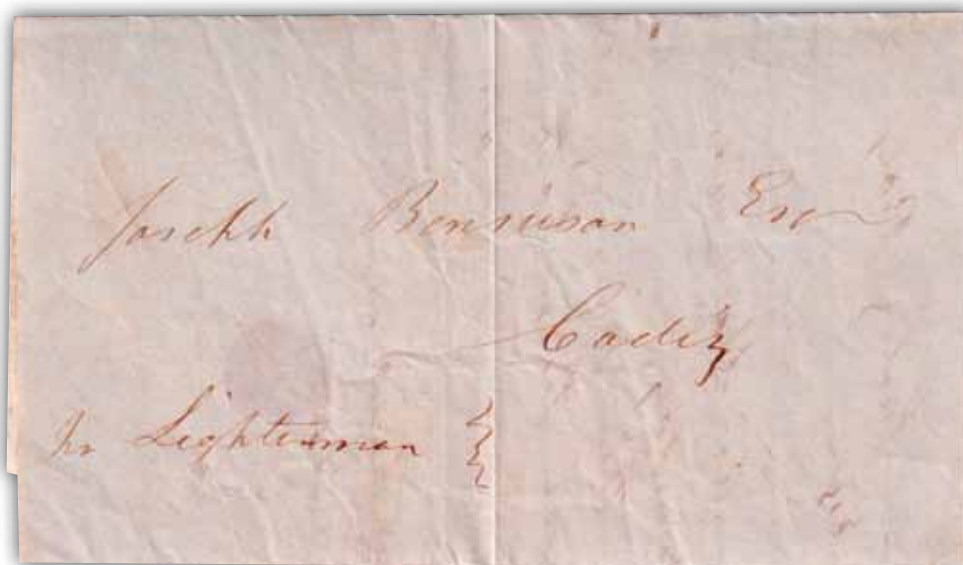 Joseph Bensusan Esq
Cadiz
pr Lighterman